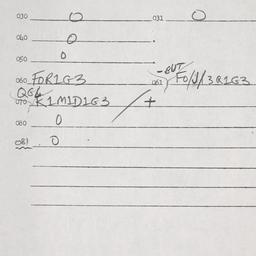 030 0 031 0
040 0
050 0
060 FOR1G3 061 -GUT FO/J/3R1G3
QG4
070 K1M1D1G3 +
080 0
081 0